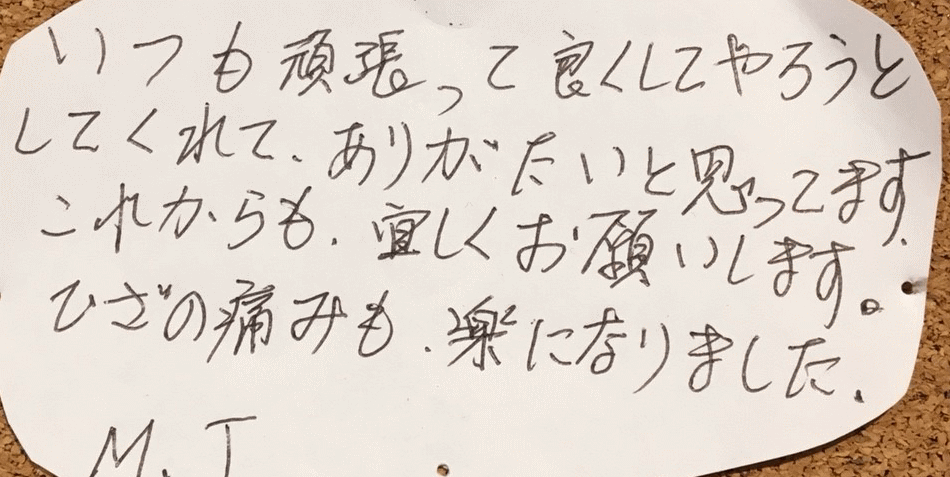 いつも頑張って良くしてやろうと
してくれて、ありがたいと思ってます、
これからも、宜しくお願いします。
ひざの痛みも、楽になりました、
M、T